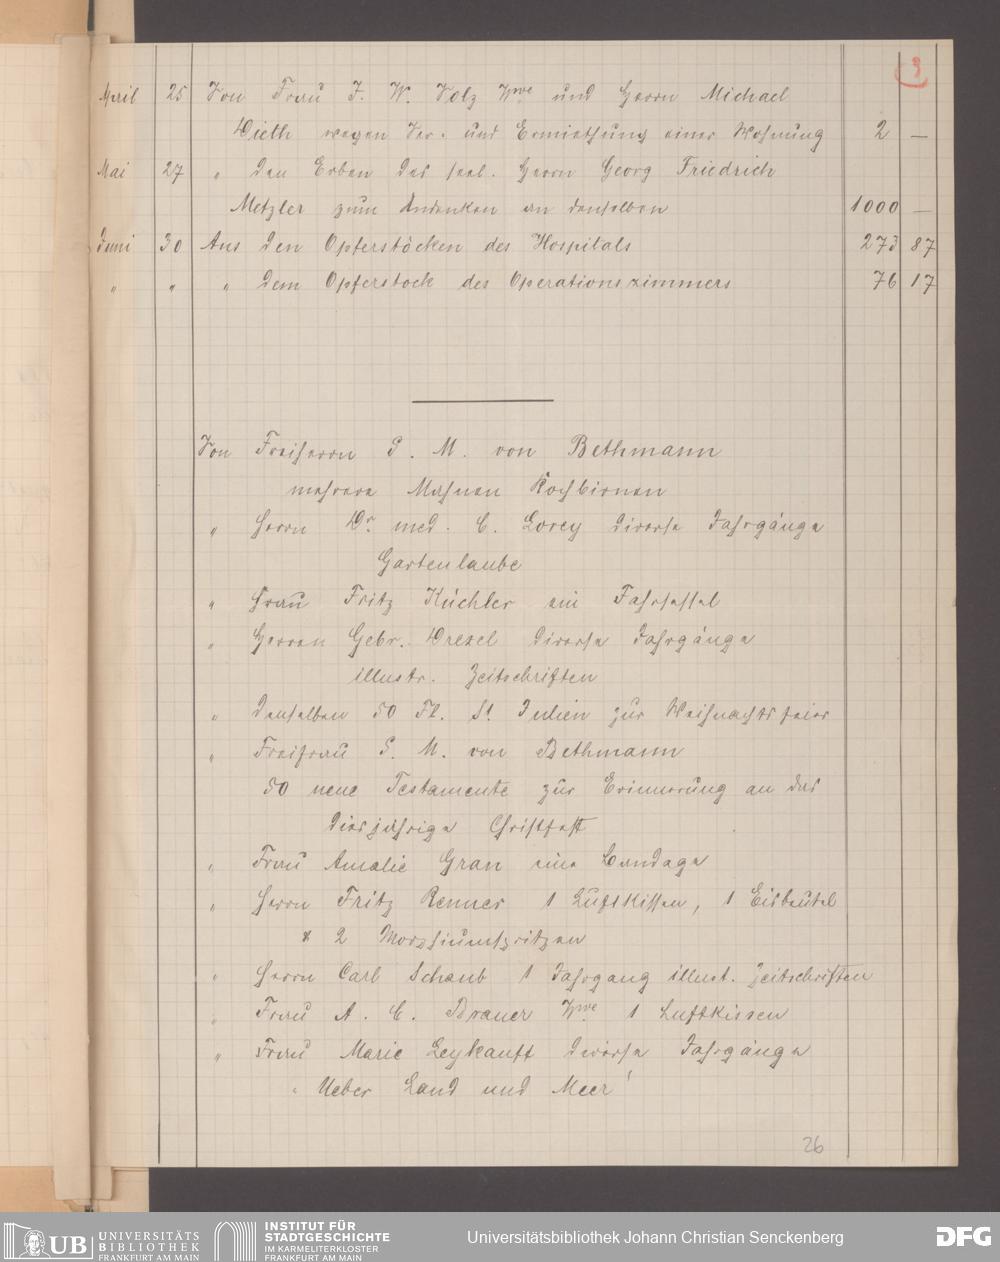 3
April 25 Von Frau J. W. Volz Wwe und Herrn Michael
Dieth wegen Ver- und Ermiethung einer Wohnung 2 —
Mai 27 „ den Erben des seel. Herrn Georg Friedrich
Metzler zum Andenken an denselben 1000 —
Juni 30 Aus den Opferstöcken des Hospitals 273 87
„ „ „ dem Opferstock des Operationszimmers 76 17
Von Freiherrn S. M. von Bethmann
mehrere Mahnen Kochbirnen
„ Herrn Dr. med. C. Lorey diverse Jahrgänge
Gartenlaube
„ Frau Fritz Küchler ein Fahrsessel
„ Herren Gebr. Drexel diverse Jahrgänge
illustr. Zeitschriften
„ denselben 50 Fl. St. Julien zur Weihnachtsfeier
„ Freifrau S. M. von Bethmann
50 neue Testamente zur Erinnerung an das
diesjährige Christfest
„ Frau Amalie Gran eine Bandage
„ Herrn Fritz Renner 1 Luftkissen, 1 Eisbeutel
& 2 Morphiumspritzen
„ Herrn Carl Schaub 1 Jahrgang illust. Zeitschriften
„ Frau A. C. Brauer Wwe 1 Luftkissen
„ Frau Marie Leykauff diverse Jahrgänge
„ Ueber Land und Meer"
26
UB UNIVERSITÄTS
BIBLIOTHEK
FRANKFURT AM MAIN
INSTITUT FÜR
STADTGESCHICHTE
IM KARMELITERKLOSTER
FRANKFURT AM MAIN
Universitätsbibliothek Johann Christian Senckenberg
DFG